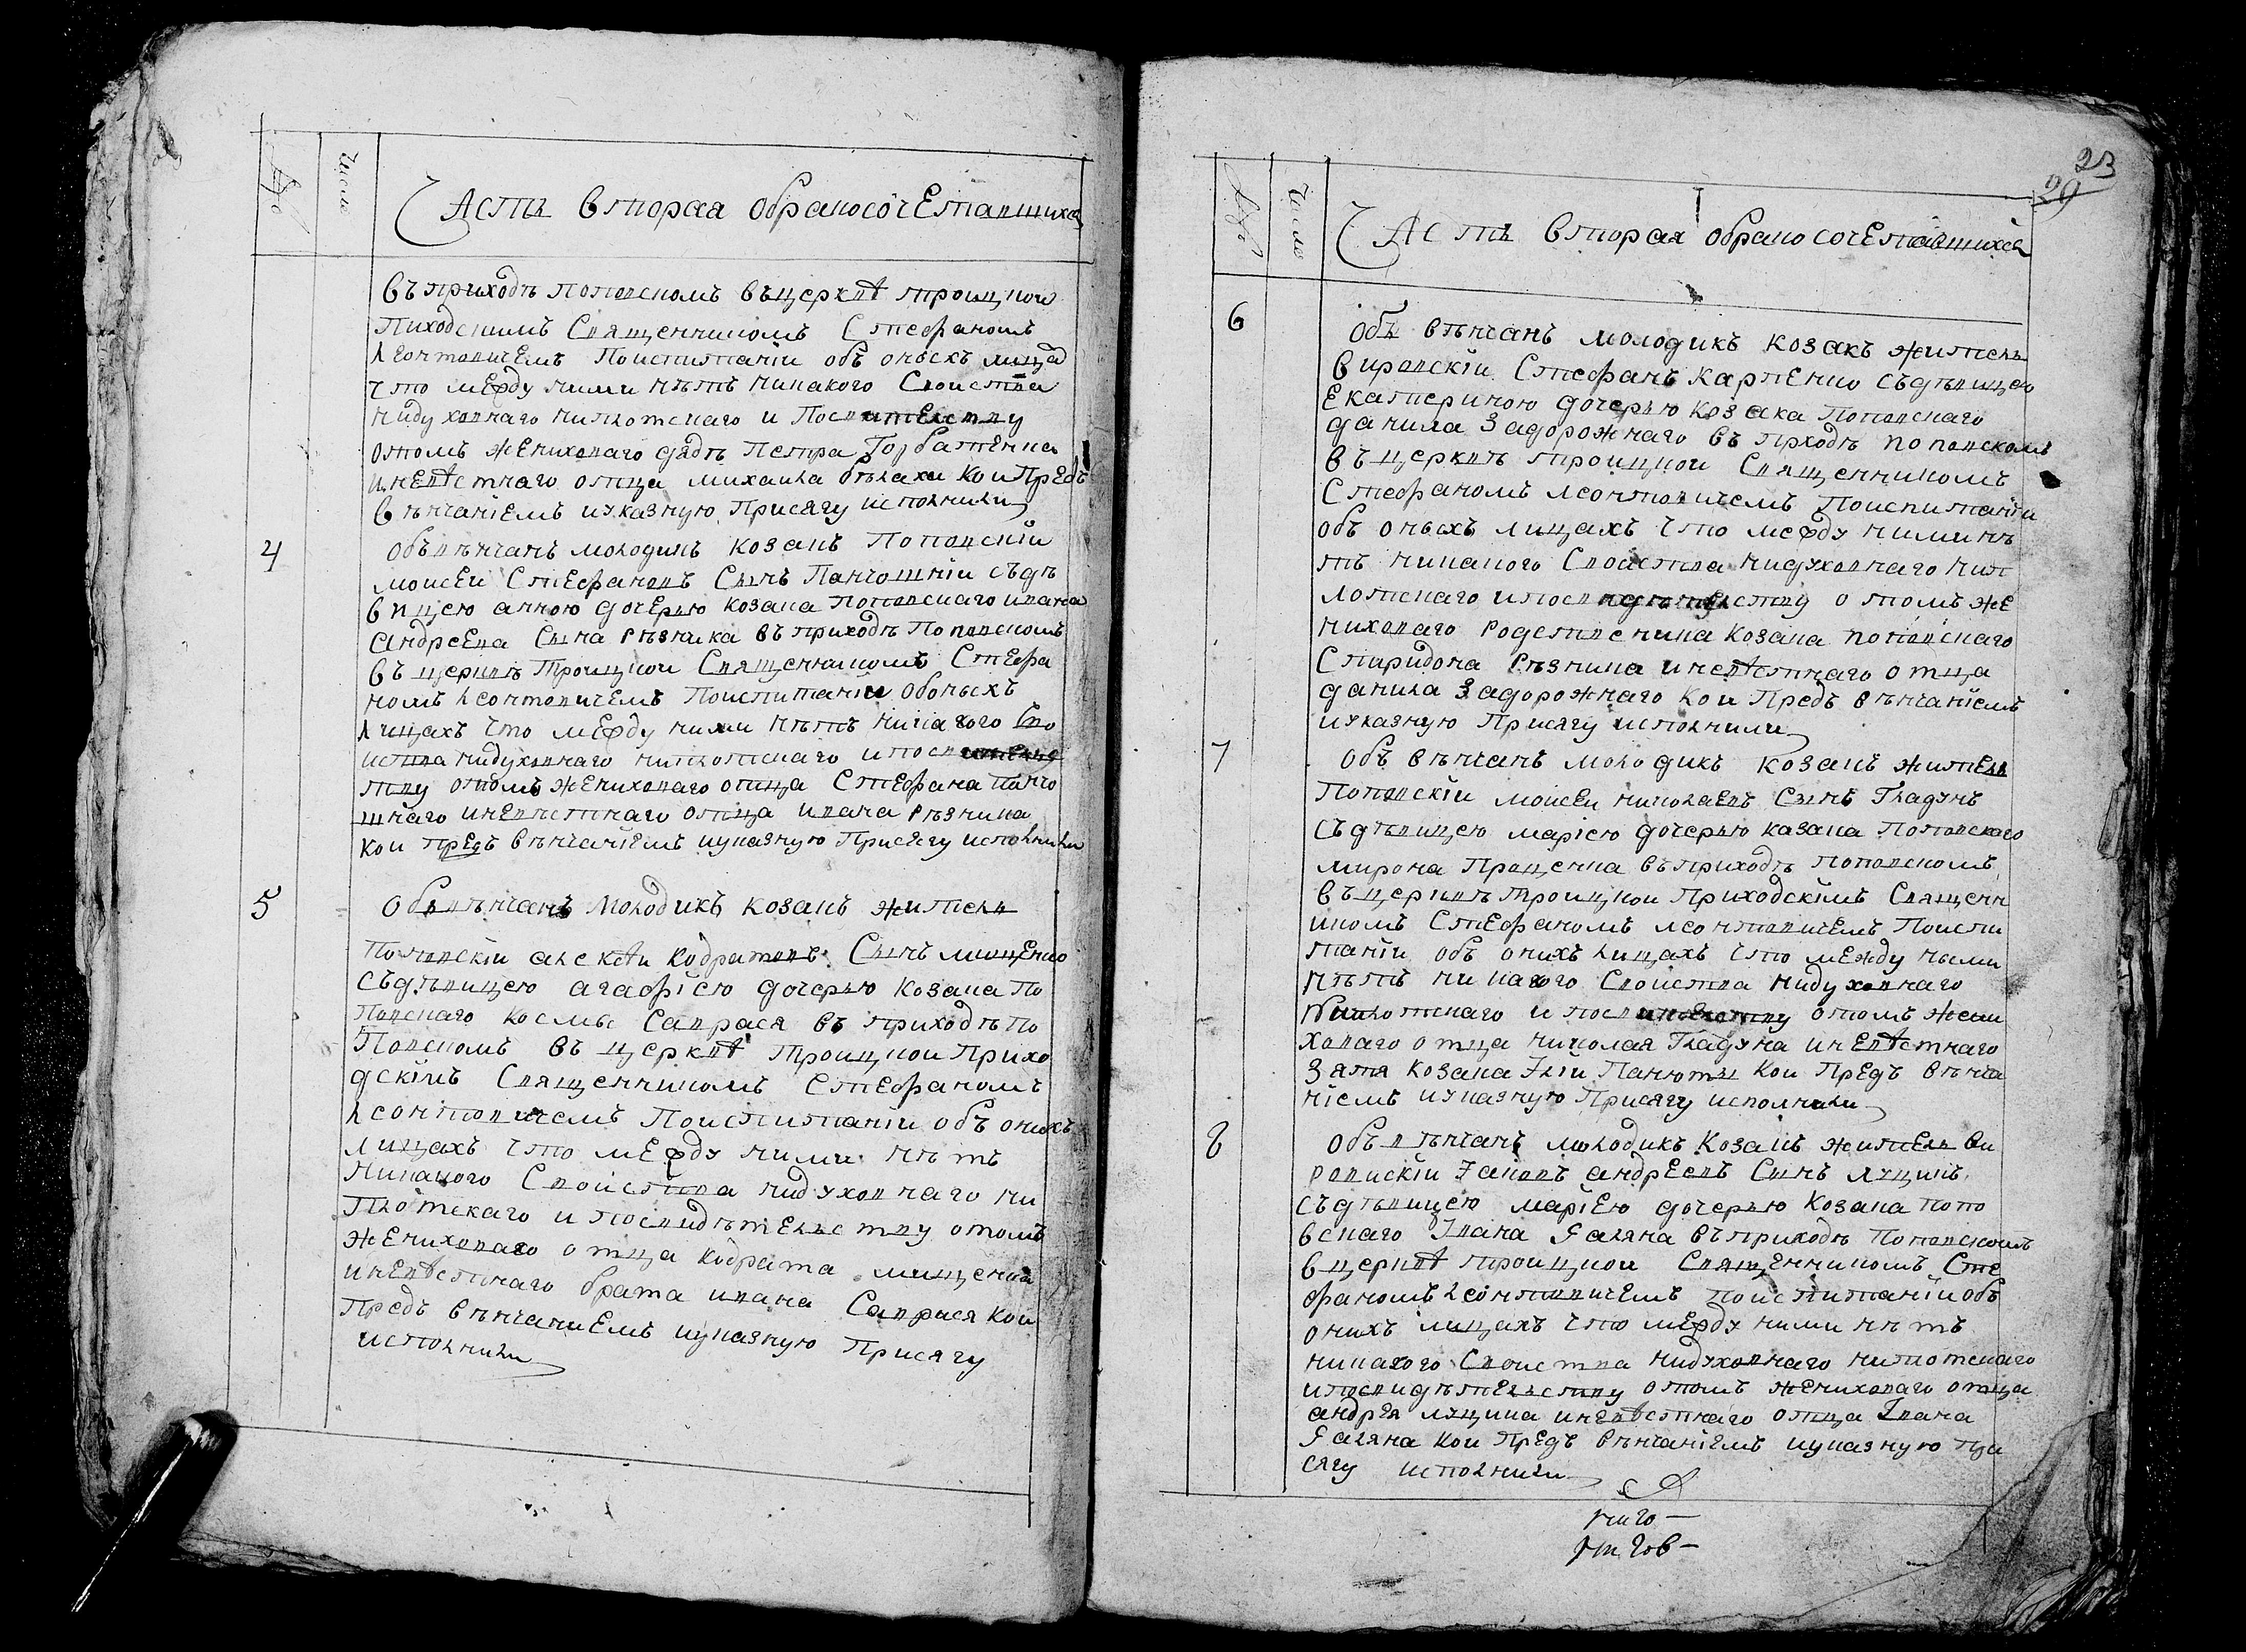 №
Число
Часть вторая обракосочетавшихся
въ приходѣ поповскомъ въ церквѣ троицкой
Пиходскимъ Священникомъ Стефаномъ
леонтовичемъ Поиспитанiи объ оныхъ лицах
что между ними нѣтъ никакого Своиства
нидуховнаго ниплотскаго и Посвителству
отомъ жениховаго дядѣ Петра Горбатенка
иневѣстнаго отца михаила бѣлахи кои Предъ
вѣнчанiемъ иуказную Присягу исполнили
4
Обвѣнчанъ молодикъ козакъ Поповскiи
моисеи Стефановъ Сынъ Панчошнiи съдѣ
вицею анною дочерью козака поповскаго ивана
андреева Сына рѣзника въ приходѣ Поповскомъ
въ церквѣ Троицкои Священникомъ Стефа
номъ леонтовичемъ Поиспитанiи обоныхъ
лицахъ что между ними нѣтъ никакого Сво
иства нидуховнаго ниплотскаго ипосвителс
тву отомъ жениховаго отца Стефана панчо
шнаго иневѣстнаго отца ивана рѣзника
кои предъ вѣнчанiемъ иуказную Присягу исполнили
5
Обвѣнчанъ молодикъ козакъ житель
Поповскiи алексѣи кодратовъ Сынъ мищенко
съдѣвицею агафiею дочерью козака По
повскаго космы Саврася въ приходѣ По
Повскомъ въ церквѣ троицкои Прихо
дскiмъ Священникомъ Стефаномъ
леонтовичемъ Поиспитанiи объ онихъ
лицахъ что между ними нѣтъ
никакого Своиства нидуховнаго ни
плотскаго и посвидѣтельству отомъ
жениховаго отца кодрата мищенка
иневѣстнаго брата ивана Саврася кои
Предъ вѣнчаниемъ иуказную Присягу
исполнили
23
29
№
Число
Часть вторая обракосочетавшихся
6
Объ вѣнчанъ молодикъ козакъ житель
вировскiи Стефанъ карпенко съдѣвицею
екатериною дочерью козака поповскаго
данила Задорожнаго въ прходѣ поповскомъ
въ церквѣ троицкои Священникомъ
Стефаномъ леонтовичемъ Поиспитанiи
объ оныхъ лицахъ что между ними нѣ
тъ никакого Своиства нидуховнаго нип
лотскаго ипосвидѣтелству о томъ же
ниховаго родственика козака поповскаго
Спиридона рѣзника иневѣстнаго отца
данила Задорожнаго кои Предъ вѣнчанiемъ
иуказную Присягу исполнили
7
Объ вѣнчанъ молодикъ козакъ житель
Поповскiи моисеи николаевъ Сынъ Гладунъ
съдѣвицею марiею дочерью казака поповскаго
мирона Проценка въ приходѣ поповскомъ
въ церквѣ троицкои Приходскiмъ Священн
икомъ Стефаномъ леонтовичемъ Поиспи
танiи объ онихъ лицахъ что между ными
нѣтъ никакого Своиства нидуховнаго
Ниплотскаго и посвителству отомъ жени
ховаго отца николая Гладуна иневѣстнаго
зятя козака Iлiи Панюты кои Предъ вѣнча
нiемъ иуказную Присягу исполнили
8
Объ вѣнчанъ молодикъ козакъ житель ви
ровискiи Iаковъ андреевъ Сынъ лущикъ
съдѣвицею марiею дочерью козака попо
вскаго Iвана Галяна въ приходѣ Поповскомъ
в церквѣ троицкои Священникомъ Сте
фаномъ леонтовичемъ поиспитанiи объ
онихъ лицахъ что между ними нѣтъ
никакого Своиства нидуховнаго ниплотскаго
ипосвидѣтельству отомъ жениховаго отца
андрея лущика иневѣстнаго отца Iвана
Галяна кои Предъ вѣнчанiемъ иуказную при
сягу исполнили